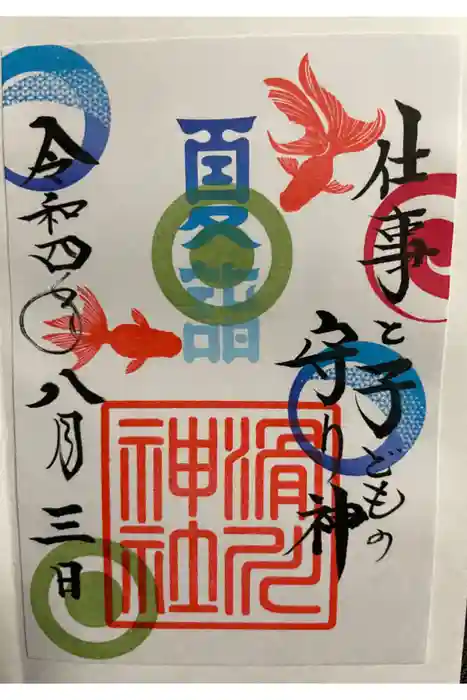 仕事と子どもの
守り神
夏詣
滑川
神社
令和四年八月三日